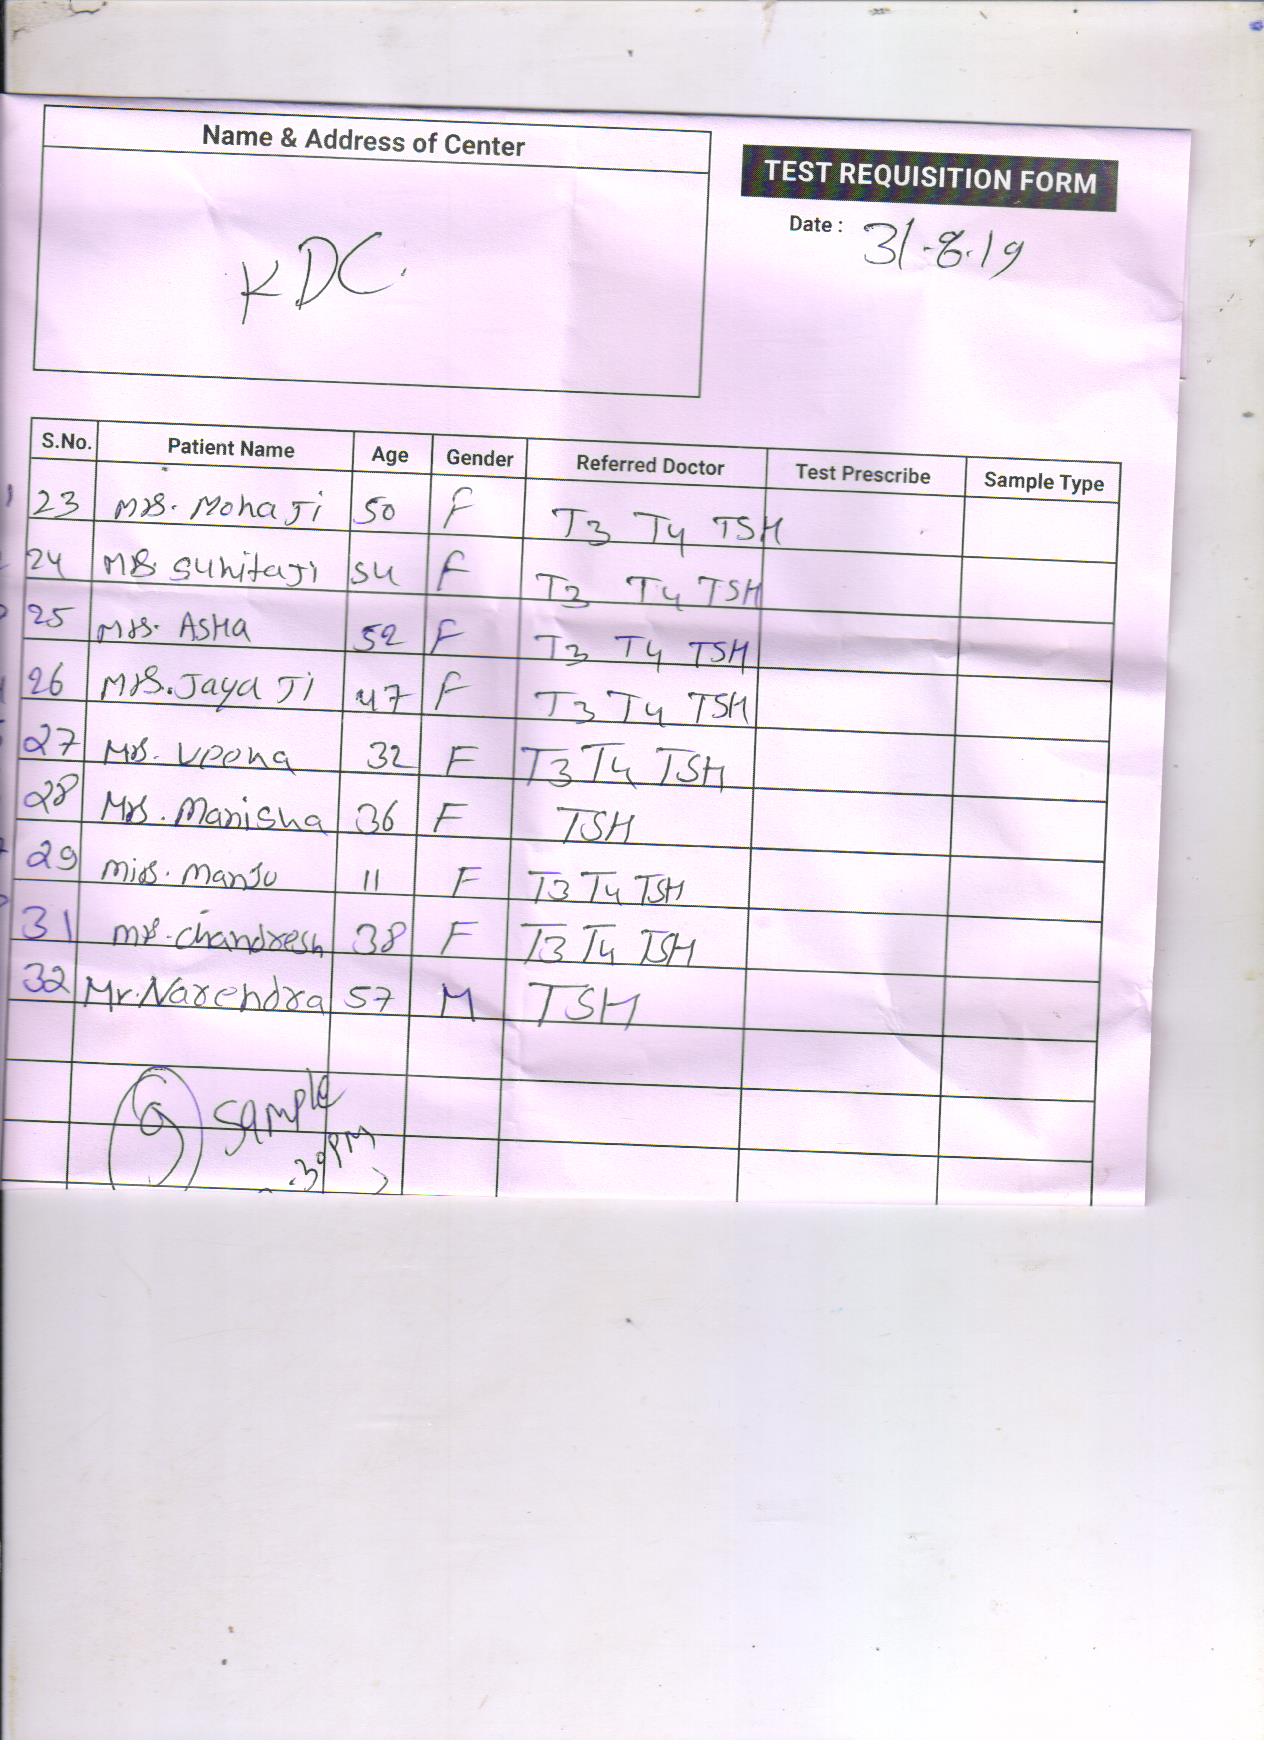 Name & Address of Center
KDC.
TEST REQUISITION FORM
Date : 31.8.19
S.No. Patient Name Age Gender Referred Doctor Test Prescribe Sample Type
23 Mrs. Mona Ji 50 F T3 T4 TSH
24 Mrs. Sunita Ji 54 F T3 T4 TSH
25 Mrs. Asha 52 F T3 T4 TSH
26 Mrs. Jaya Ji 47 F T3 T4 TSH
27 Mrs. Veena 32 F T3 T4 TSH
28 Mrs. Manisha 36 F TSH
29 Miss. Manju 11 F T3 T4 TSH
31 Mrs. Chandresh 38 F T3 T4 TSH
32 Mr. Narendra 57 M TSH
9 Sample
.30 PM